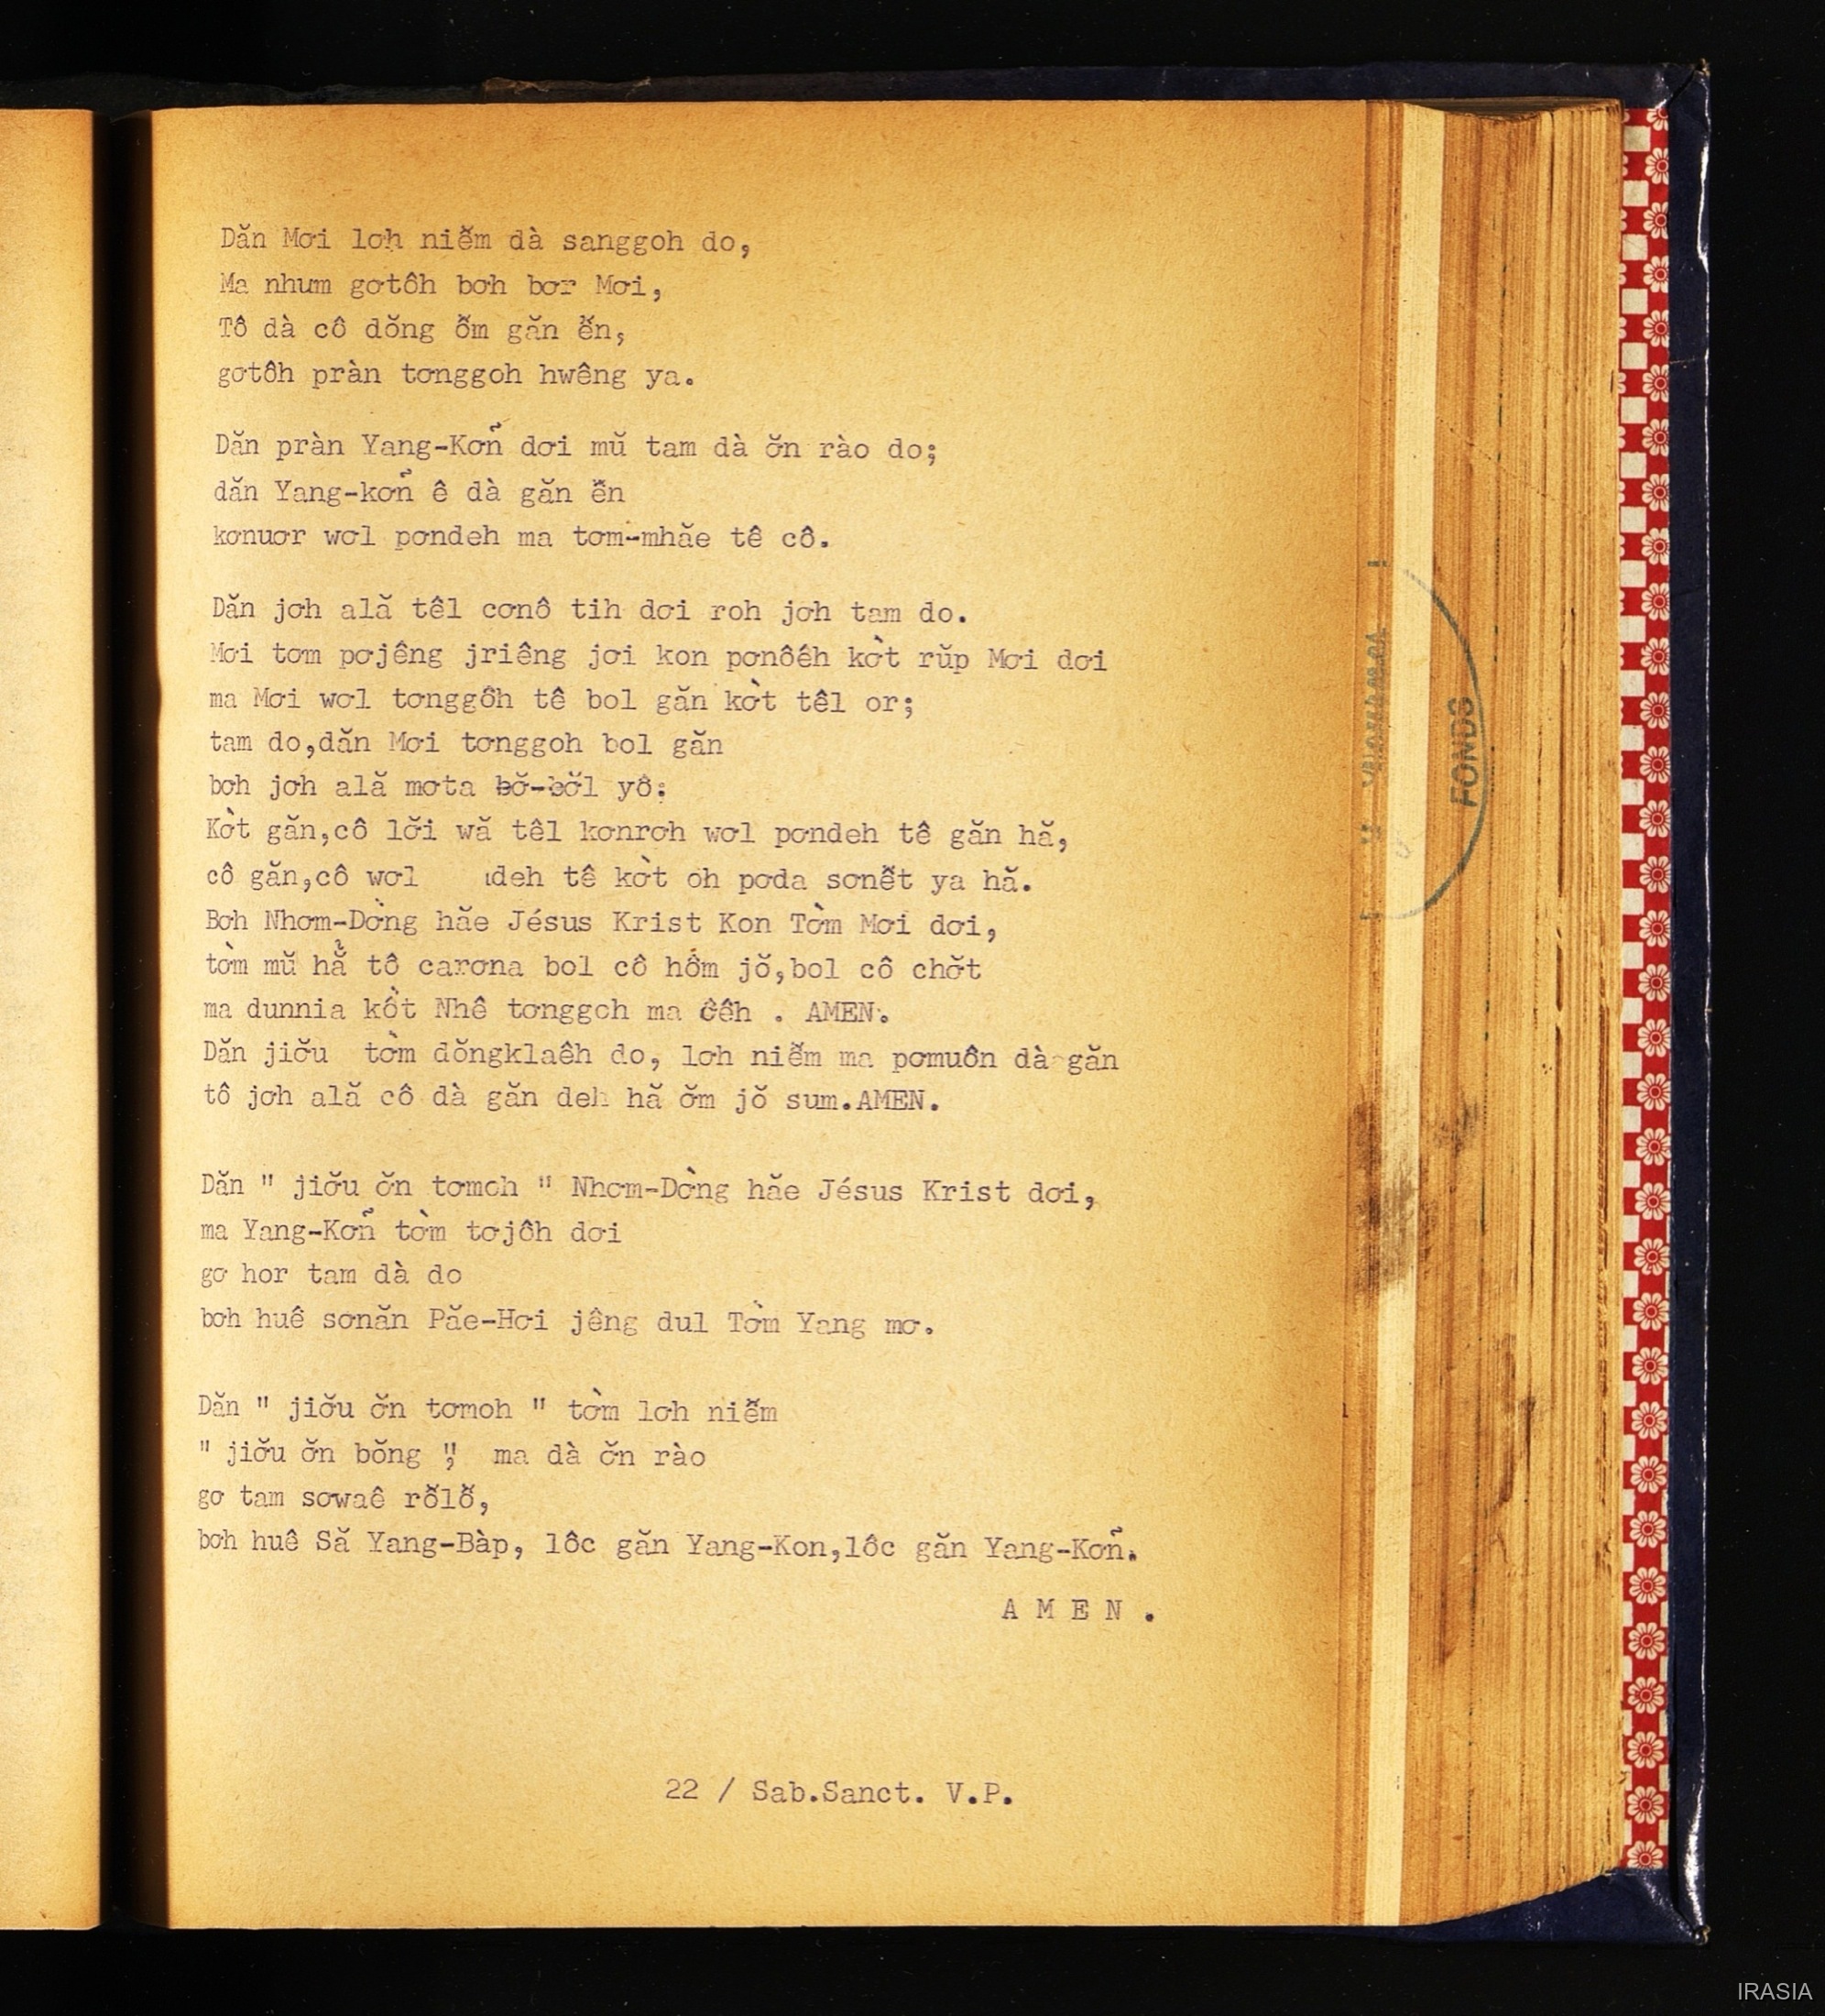 Dăn Mơi lơh niễm dà sanggoh do,
Ma nhum gơtôh bơh bơr Mơi,
Tô dà cô dŏng ỗm găn ễn,
gơtôh pràn tơnggoh hwêng ya.
Dăn pràn Yang-Kơñ dơi mŭ tam dà ơ̆n rào do;
dăn Yang-kơñ ê dà găn ễn
kơnuơr wơl pơndeh ma tơm-mhăe tê cô.
Dăn jơh ală têl cơnô tih dơi roh jơh tam do.
Mơi tơm pơjêng jriêng jơi kon pơnôêh kờt rŭp Mơi dơi
ma Mơi wơl tơnggôh tê bol găn kờt têl or;
tam do,dăn Mơi tơnggoh bol găn
bơh jơh ală mơta bơ̆-bơ̆l yô;
Kờt găn,cô lơ̆i wă têl kơnrơh wơl pơndeh tê găn hă,
cô găn,cô wơl deh tê kờt oh pơda sơnễt ya hă.
Bơh Nhơm-Dờng hăe Jésus Krist Kon Tờm Mơi dơi,
tờm mŭ hằ tô carơna bol cô hổm jŏ,bol cô chơ̆t
ma dunnia kồt Nhê tơnggoh ma ôêh . AMEN.
Dăn jiơ̆u tờm dŏngklaêh do, lơh niễm ma pơmuôn dà găn
tô jơh ală cô dà găn deh hă ơ̆m jŏ sum.AMEN.
Dăn " jiơ̆u ơ̆n tơmoh " Nhơm-Dờng hăe Jésus Krist dơi,
ma Yang-Kơñ tờm tơjôh dơi
gơ hor tam dà do
bơh huê sơnăn Păe-Hơi jêng dul Tờm Yang mơ.
Dăn " jiơ̆u ơ̆n tơmoh " tờm lơh niễm
" jiơ̆u ơ̆n bŏng ", ma dà ơ̆n rào
gơ tam sơwaê rỗlỗ,
bơh huê Să Yang-Bàp, lôc găn Yang-Kon,lôc găn Yang-Kơñ.
A M E N .
22 / Sab.Sanct. V.P.
FONDS
IRASIA